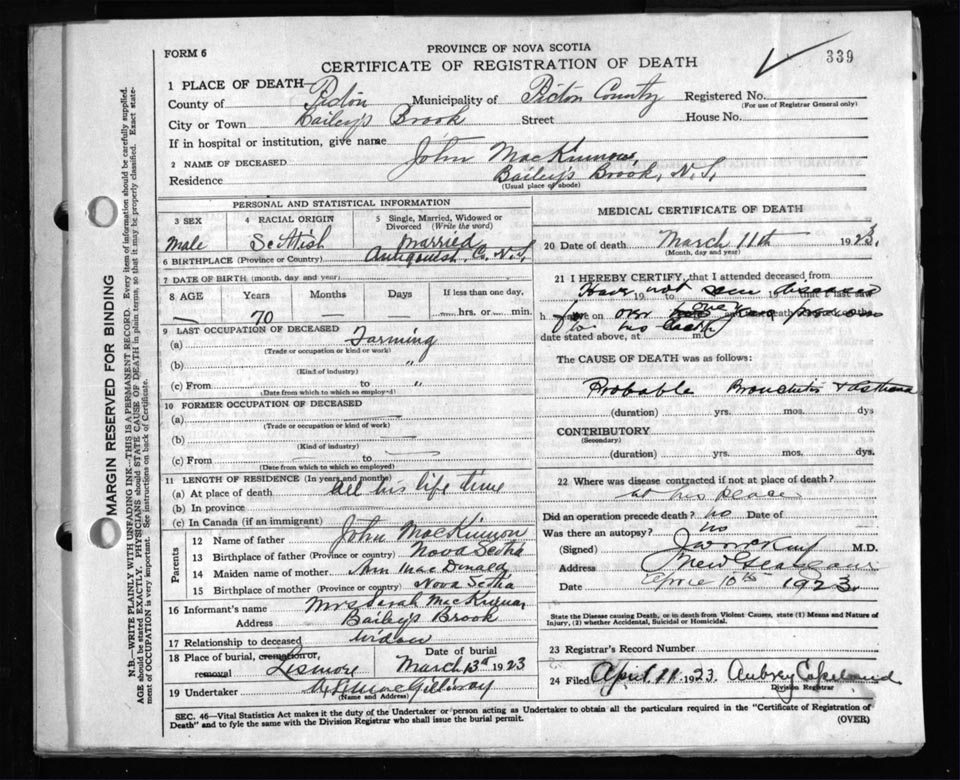 PROVINCE OF NOVA SCOTIA
FORM 6
CERTIFICATE OF REGISTRATION OF DEATH
339
1 PLACE OF DEATH—
County of Pictou Municipality of Pictou County Registered No.
(For use of Registrar General only)
City or Town Baileys Brook Street House No.
If in hospital or institution, give name
2 NAME OF DECEASED John MacKinnon,
Residence Bailey's Brook, N.S,
(Usual place of abode)
PERSONAL AND STATISTICAL INFORMATION
3 SEX
male
4 RACIAL ORIGIN
Scottish
5 Single, Married, Widowed or Divorced (Write the word)
Married
6 BIRTHPLACE (Province or Country) Antigonish. Co. N.S.
7 DATE OF BIRTH (month, day and year)
8 AGE Years Months Days If less than one day,
— 70 — hrs. or min.
9 LAST OCCUPATION OF DECEASED
(a) Farming
(Trade or occupation or kind or work)
(b) "
(Kind of industry)
(c) From to "
(Date from which to which so employed)
10 FORMER OCCUPATION OF DECEASED
(a)
(Trade or occupation or kind of work)
(b)
(Kind of industry)
(c) From to
(Date from which to which so employed)
11 LENGTH OF RESIDENCE (In years and months)
(a) At place of death all his life time
(b) In province
(c) In Canada (if an immigrant)
Parents
12 Name of father John MacKinnon
13 Birthplace of father (Province or country) Nova Scotia
14 Maiden name of mother Ann MacDonald
15 Birthplace of mother (Province or country) Nova Scotia
16 Informant's name Mrs Sarah McKinnon
Address Baileys Brook
17 Relationship to deceased widow
18 Place of burial, cremation or, removal Lismore
Date of burial March 13th 1923
19 Undertaker MacGillivray
(Name and Address)
MEDICAL CERTIFICATE OF DEATH
20 Date of death March 11th 1923.
(Month, day and year)
21 I HEREBY CERTIFY, that I attended deceased from
Have not seen deceased
19 to 19 that I last saw
h for over one year
to his death
date stated above, at m.
The CAUSE OF DEATH was as follows:
Probable Bronchitis & Asthma
(duration) yrs. mos. dys
CONTRIBUTORY
(Secondary)
(duration) yrs. mos. dys.
22 Where was disease contracted if not at place of death?
at his place
Did an operation precede death? no Date of
Was there an autopsy? no
(Signed) M.D.
New Glasgow
Date April 10th 1923.
State the Disease causing Death, or in death from Violent Causes, state (1) Means and Nature of Injury, (2) whether Accidental, Suicidal or Homicidal.
23 Registrar's Record Number
24 Filed April 11 1923 Aubrey Copeland
Division Registrar
SEC. 46—Vital Statistics Act makes it the duty of the Undertaker or person acting as Undertaker to obtain all the particulars required in the "Certificate of Registration of
Death"—and to fyle the same with the Division Registrar who shall issue the burial permit.
(OVER)
MARGIN RESERVED FOR BINDING
N.B.—WRITE PLAINLY WITH UNFADING INK—THIS IS A PERMANENT RECORD. Every item of information should be carefully supplied.
AGE should be stated EXACTLY. PHYSICIANS should STATE CAUSE OF DEATH in plain terms, so that it may be properly classified. Exact state-
ment of OCCUPATION is very important. See instructions on back of Certificate.